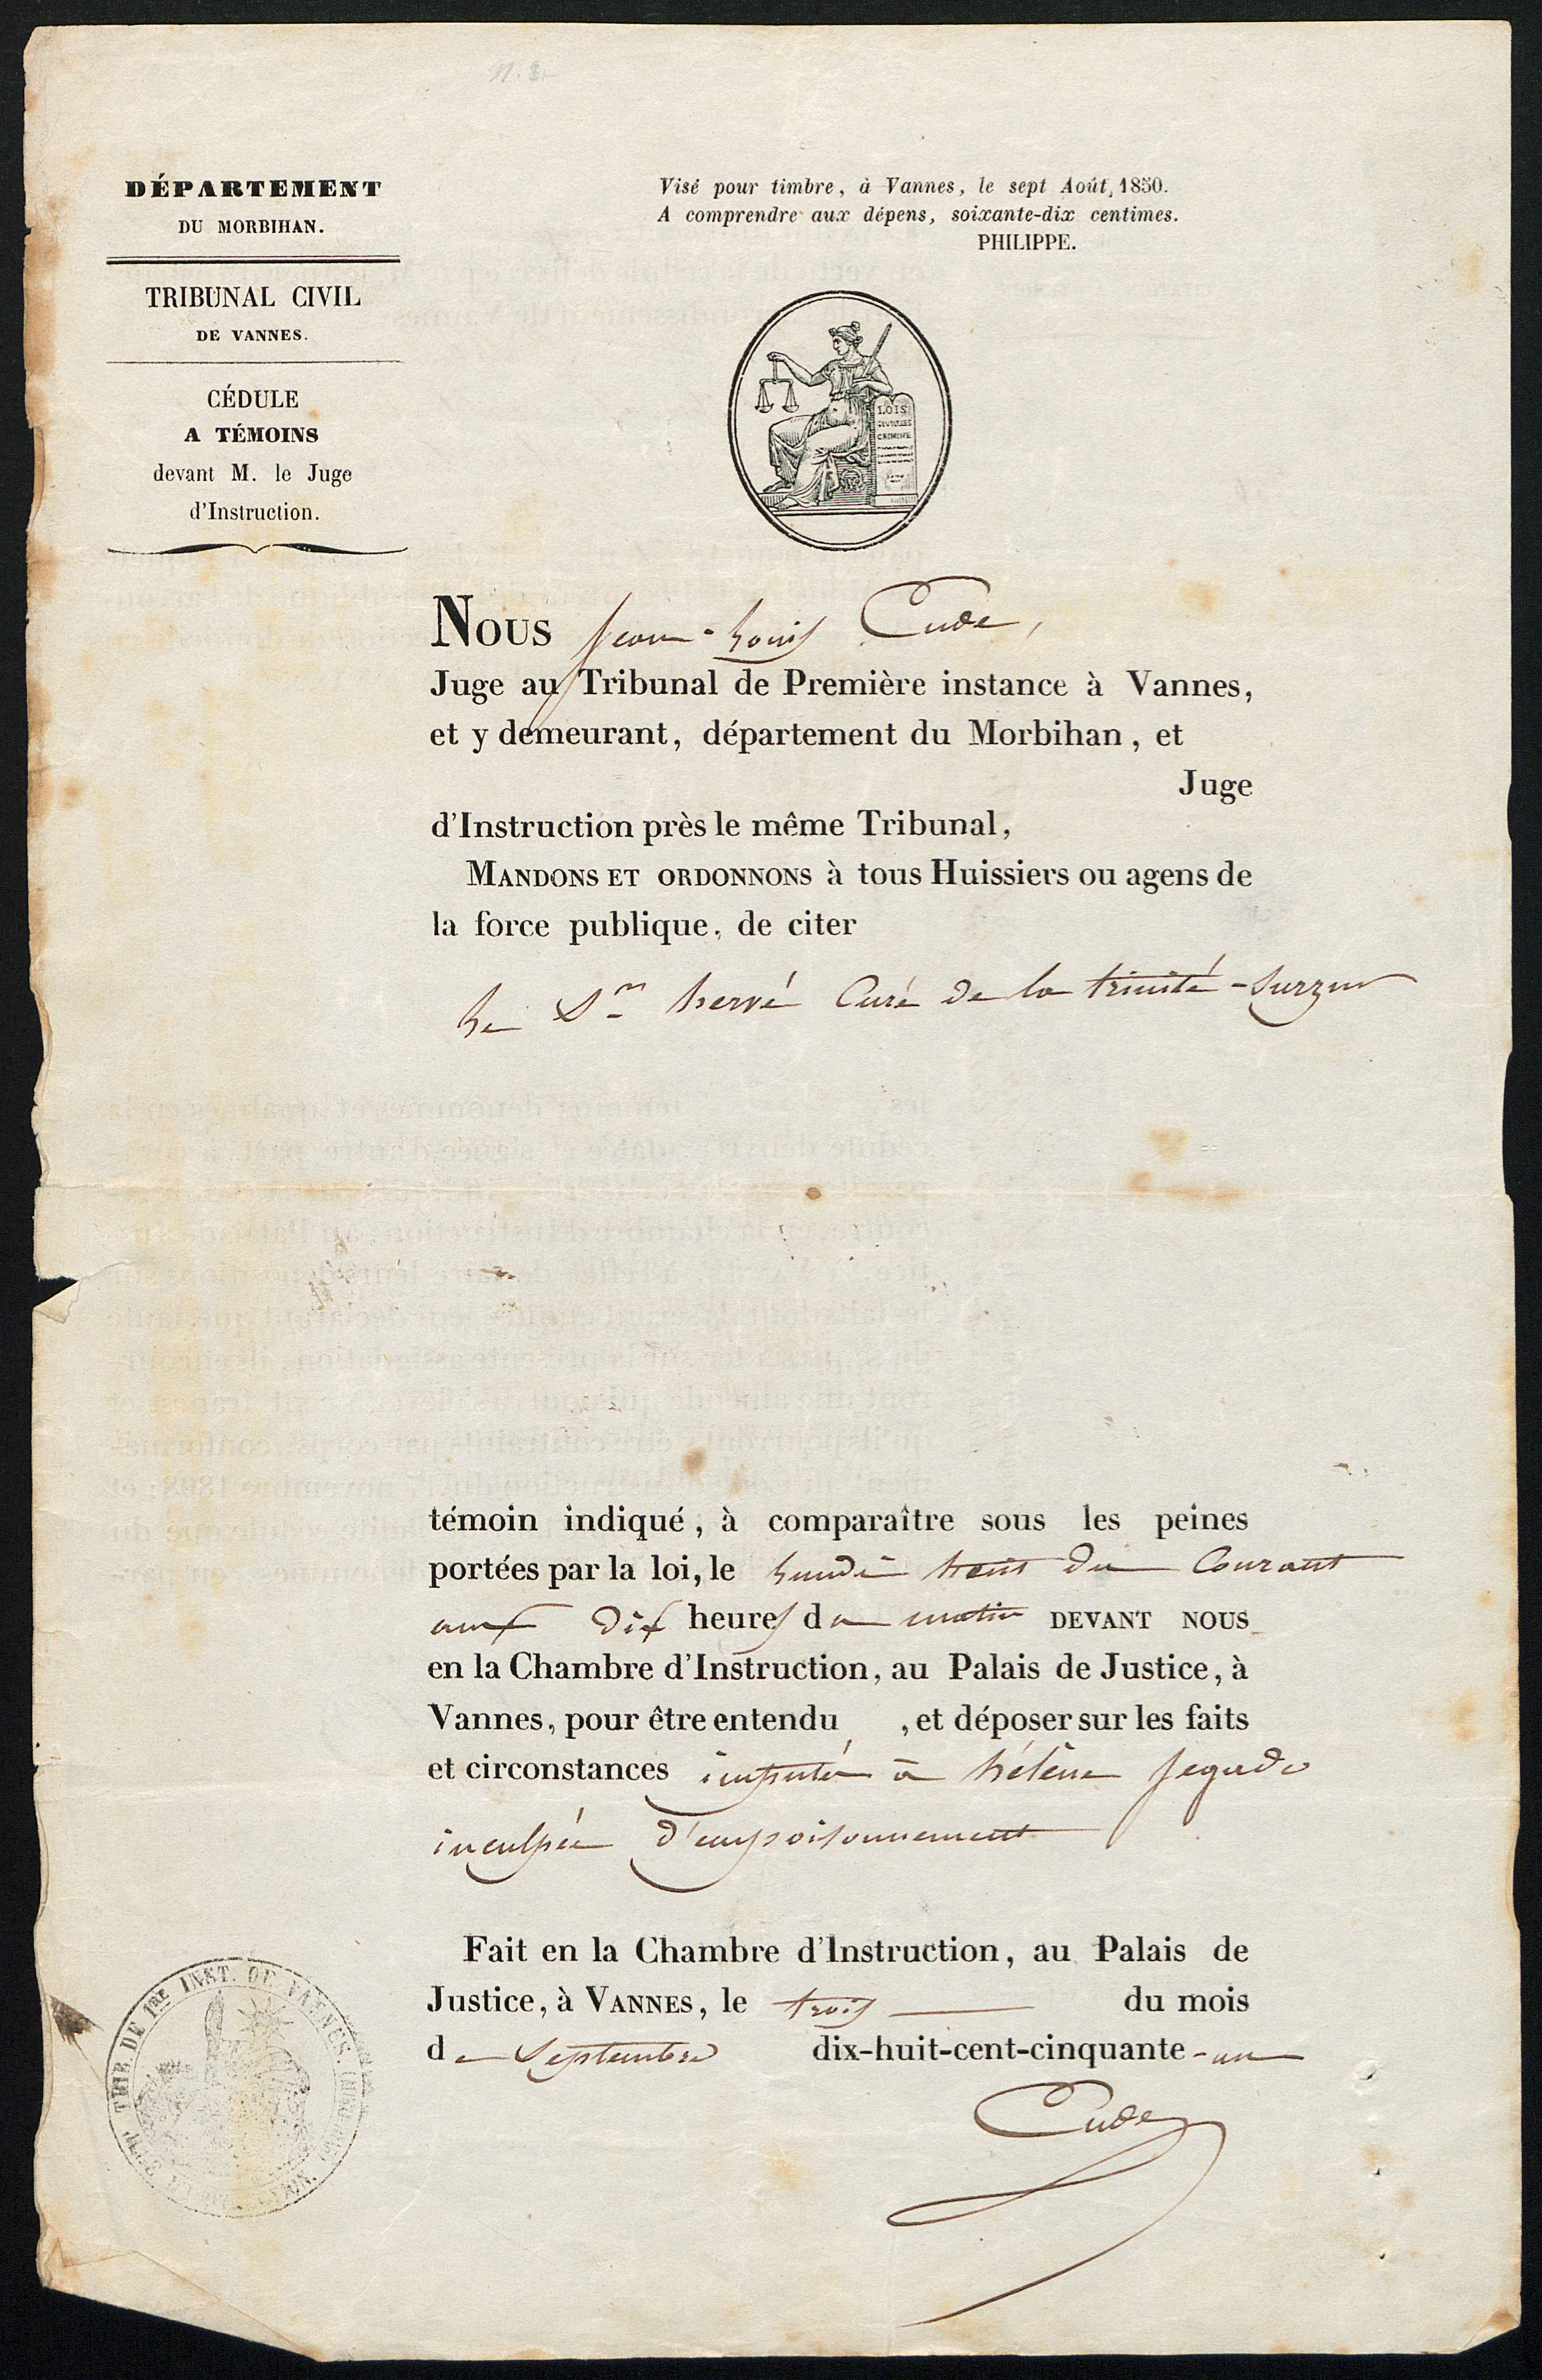 DÉPARTEMENT
DU MORBIHAN.
TRIBUNAL CIVIL
DE VANNES.
CÉDULE
A TÉMOINS
devant M. le Juge
d'Instruction.
Visé pour timbre, à Vannes, le sept Août, 1850.
A comprendre aux dépens, soixante-dix centimes.
PHILIPPE.
LOIS
CIVILES
CRIMINE
Nous Jean-Louis Cude,
Juge au Tribunal de Première instance à Vannes,
et y demeurant, département du Morbihan, et
Juge
d'Instruction près le même Tribunal,
MANDONS ET ORDONNONS à tous Huissiers ou agens de
la force publique, de citer
Le Sr hervé Curé de la trinité-Surzur
témoin indiqué, à comparaître sous les peines
portées par la loi, le Lundi huit du Courant
aux dix heures du matin DEVANT NOUS
en la Chambre d'Instruction, au Palais de Justice, à
Vannes, pour être entendu , et déposer sur les faits
et circonstances imputés à hélène Jegado
inculpée d'empoisonnement
Fait en la Chambre d'Instruction, au Palais de
Justice, à VANNES, le trois du mois
de Septembre dix-huit-cent-cinquante-un
Cude
TRIB. DE 1RE INST. DE VANNES.